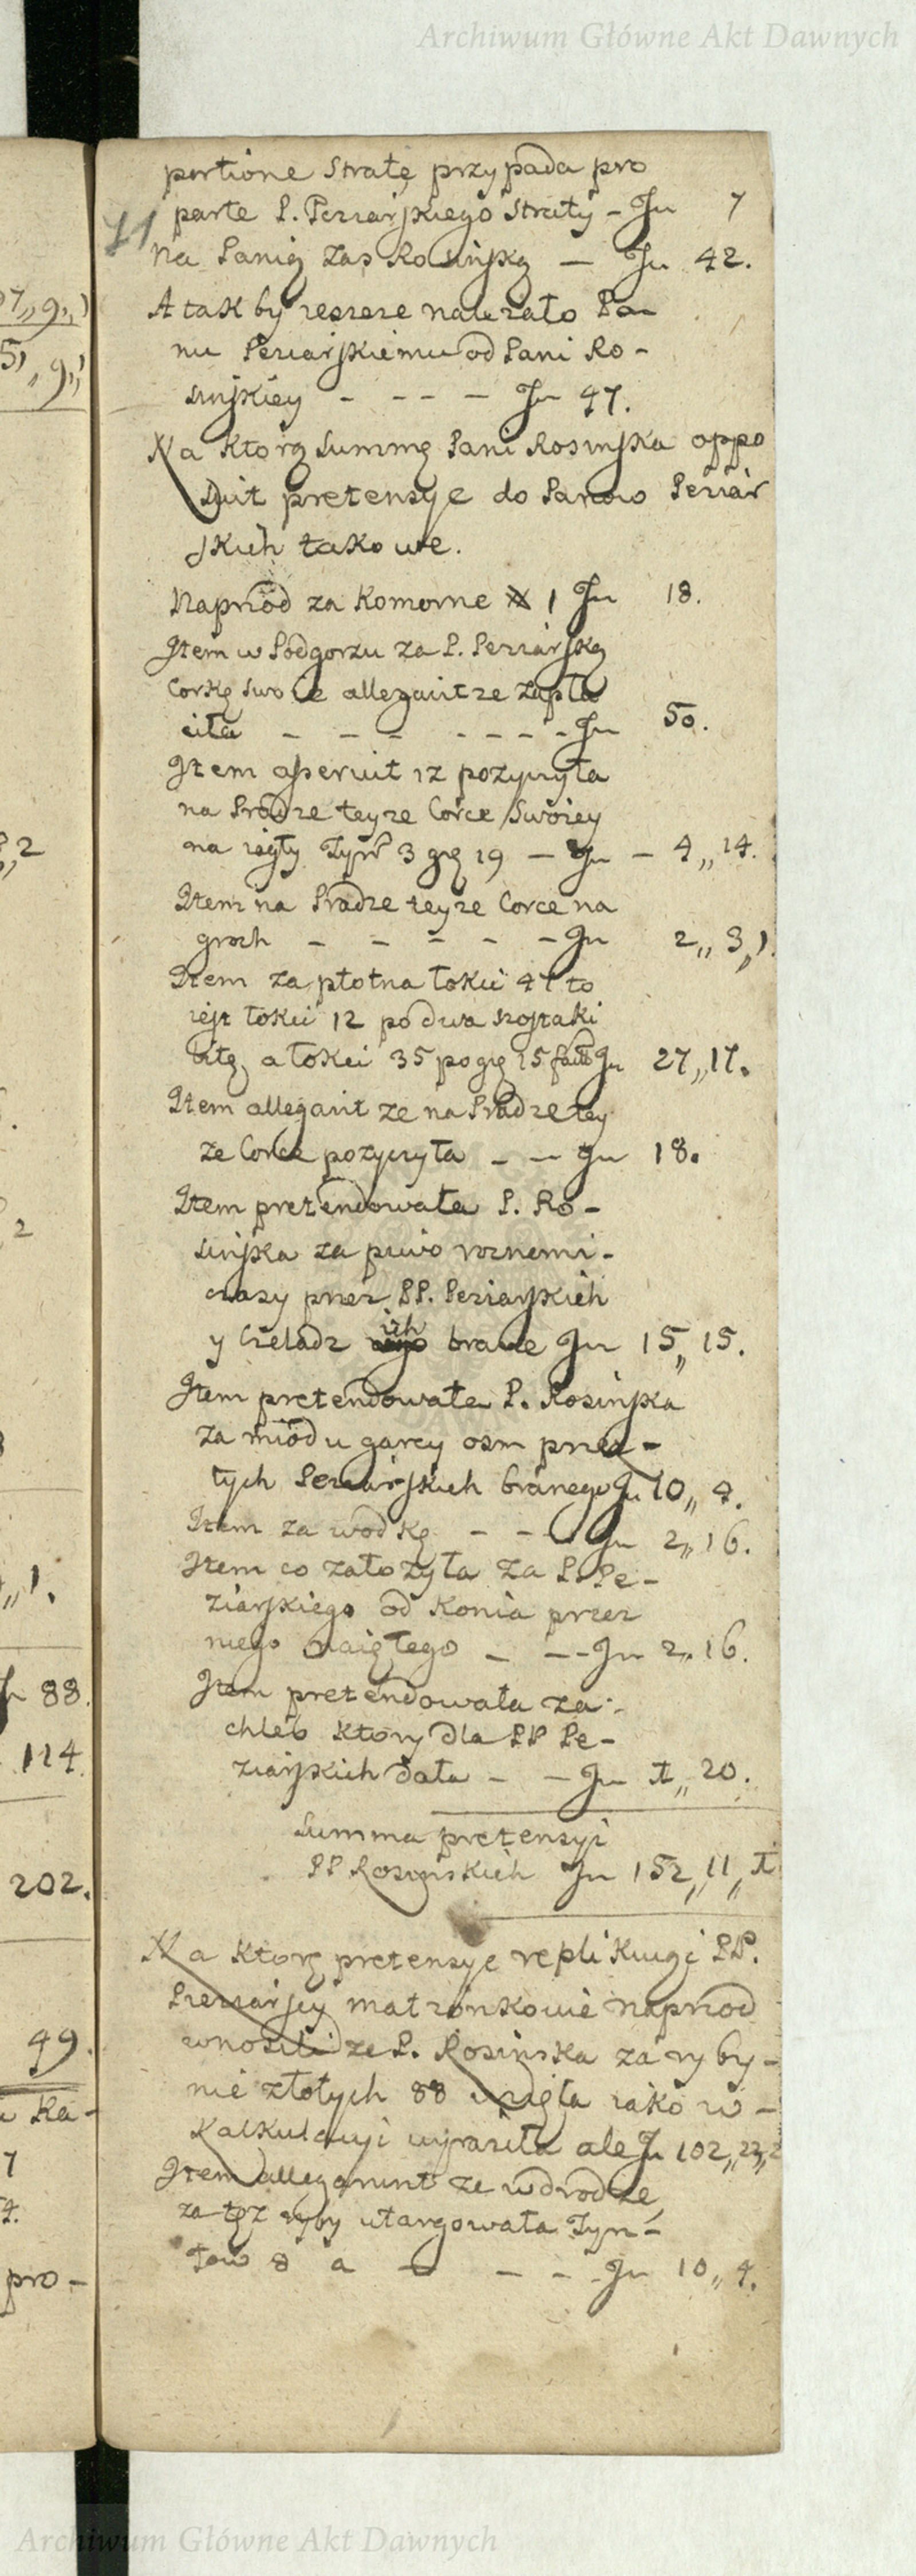 Archiwum Główne Akt Dawnych
portione Stratę przypada pro
71
parte P. Peziarskiego Straty - fu 7
Na Panią zas Rosinską — fu 42.
A tak by ieszcze nalezało Pa-
nu Peziarskiemu od Pani Ro-
sinskiey - - - — fu 47.
Na ktorą Summę Pani Rosinska oppo
suit pretensye do Panow Peziar
skich takowe.
Naprzod za Komorne 1 fu 18.
Item w Podgorzu za P. Peziarską
Corkę swoię allegavit ze zapła
ciła - - - - - - - fu 50.
Item asseruit iz pozyczyła
na Pradze teyze Corce Swoiey
na iagły Tynf 3 grę 19 — fu - 4,,14.
Item na Pradze teyze Corce na
groch - - - - - fu 2,,3,,1.
Item za płotna łokci 47 to
iest łokci 12 po dwa szostaki
bitę, a łokci 35 po grę 15 facit fu 27,,17.
Item allegavit ze na Pradze tey
ze Corce pozyczyła - — fu 18.
Item pretendowała P. Ro-
sinska za piwo roznemi-
czasy przez PP. Peziarskich
y Czeladz ich brane fu 15,,15.
Item pretendowała P. Rosinska
za miodu garcy osm przez-
tych Peziarskich branego fu 10,,4.
Item za wodkę - - - fu 2,,16.
Item co załozyła za P. Pe-
ziarskiego od Konia przez
niego naiętego - - - fu 2,,16.
Item pretendowała za-
chleb ktory dla PP Pe-
ziarskich dała - — fu 1,,20.
Summa pretensyi
PP Rosinskich fu 152,,11,,1
Na ktorę pretensye replikuiąc PP.
Pieziarscy małzonkowie naprzod
wnosili ze P. Rosinska za ryby-
nie złotych 88 wzięła iako w-
Kalkulacyi wyraziła ale fu 102,,22,,2
Item allegarunt ze w drodze
za tęz ryby utargowała Tyn-
fow 8 a — - - - fu 10,,4.
07,,9,,1
5,,9,,1
2
2
1.
88.
114.
202.
49.
Ka-
7
4.
pro-
Archiwum Główne Akt Dawnych